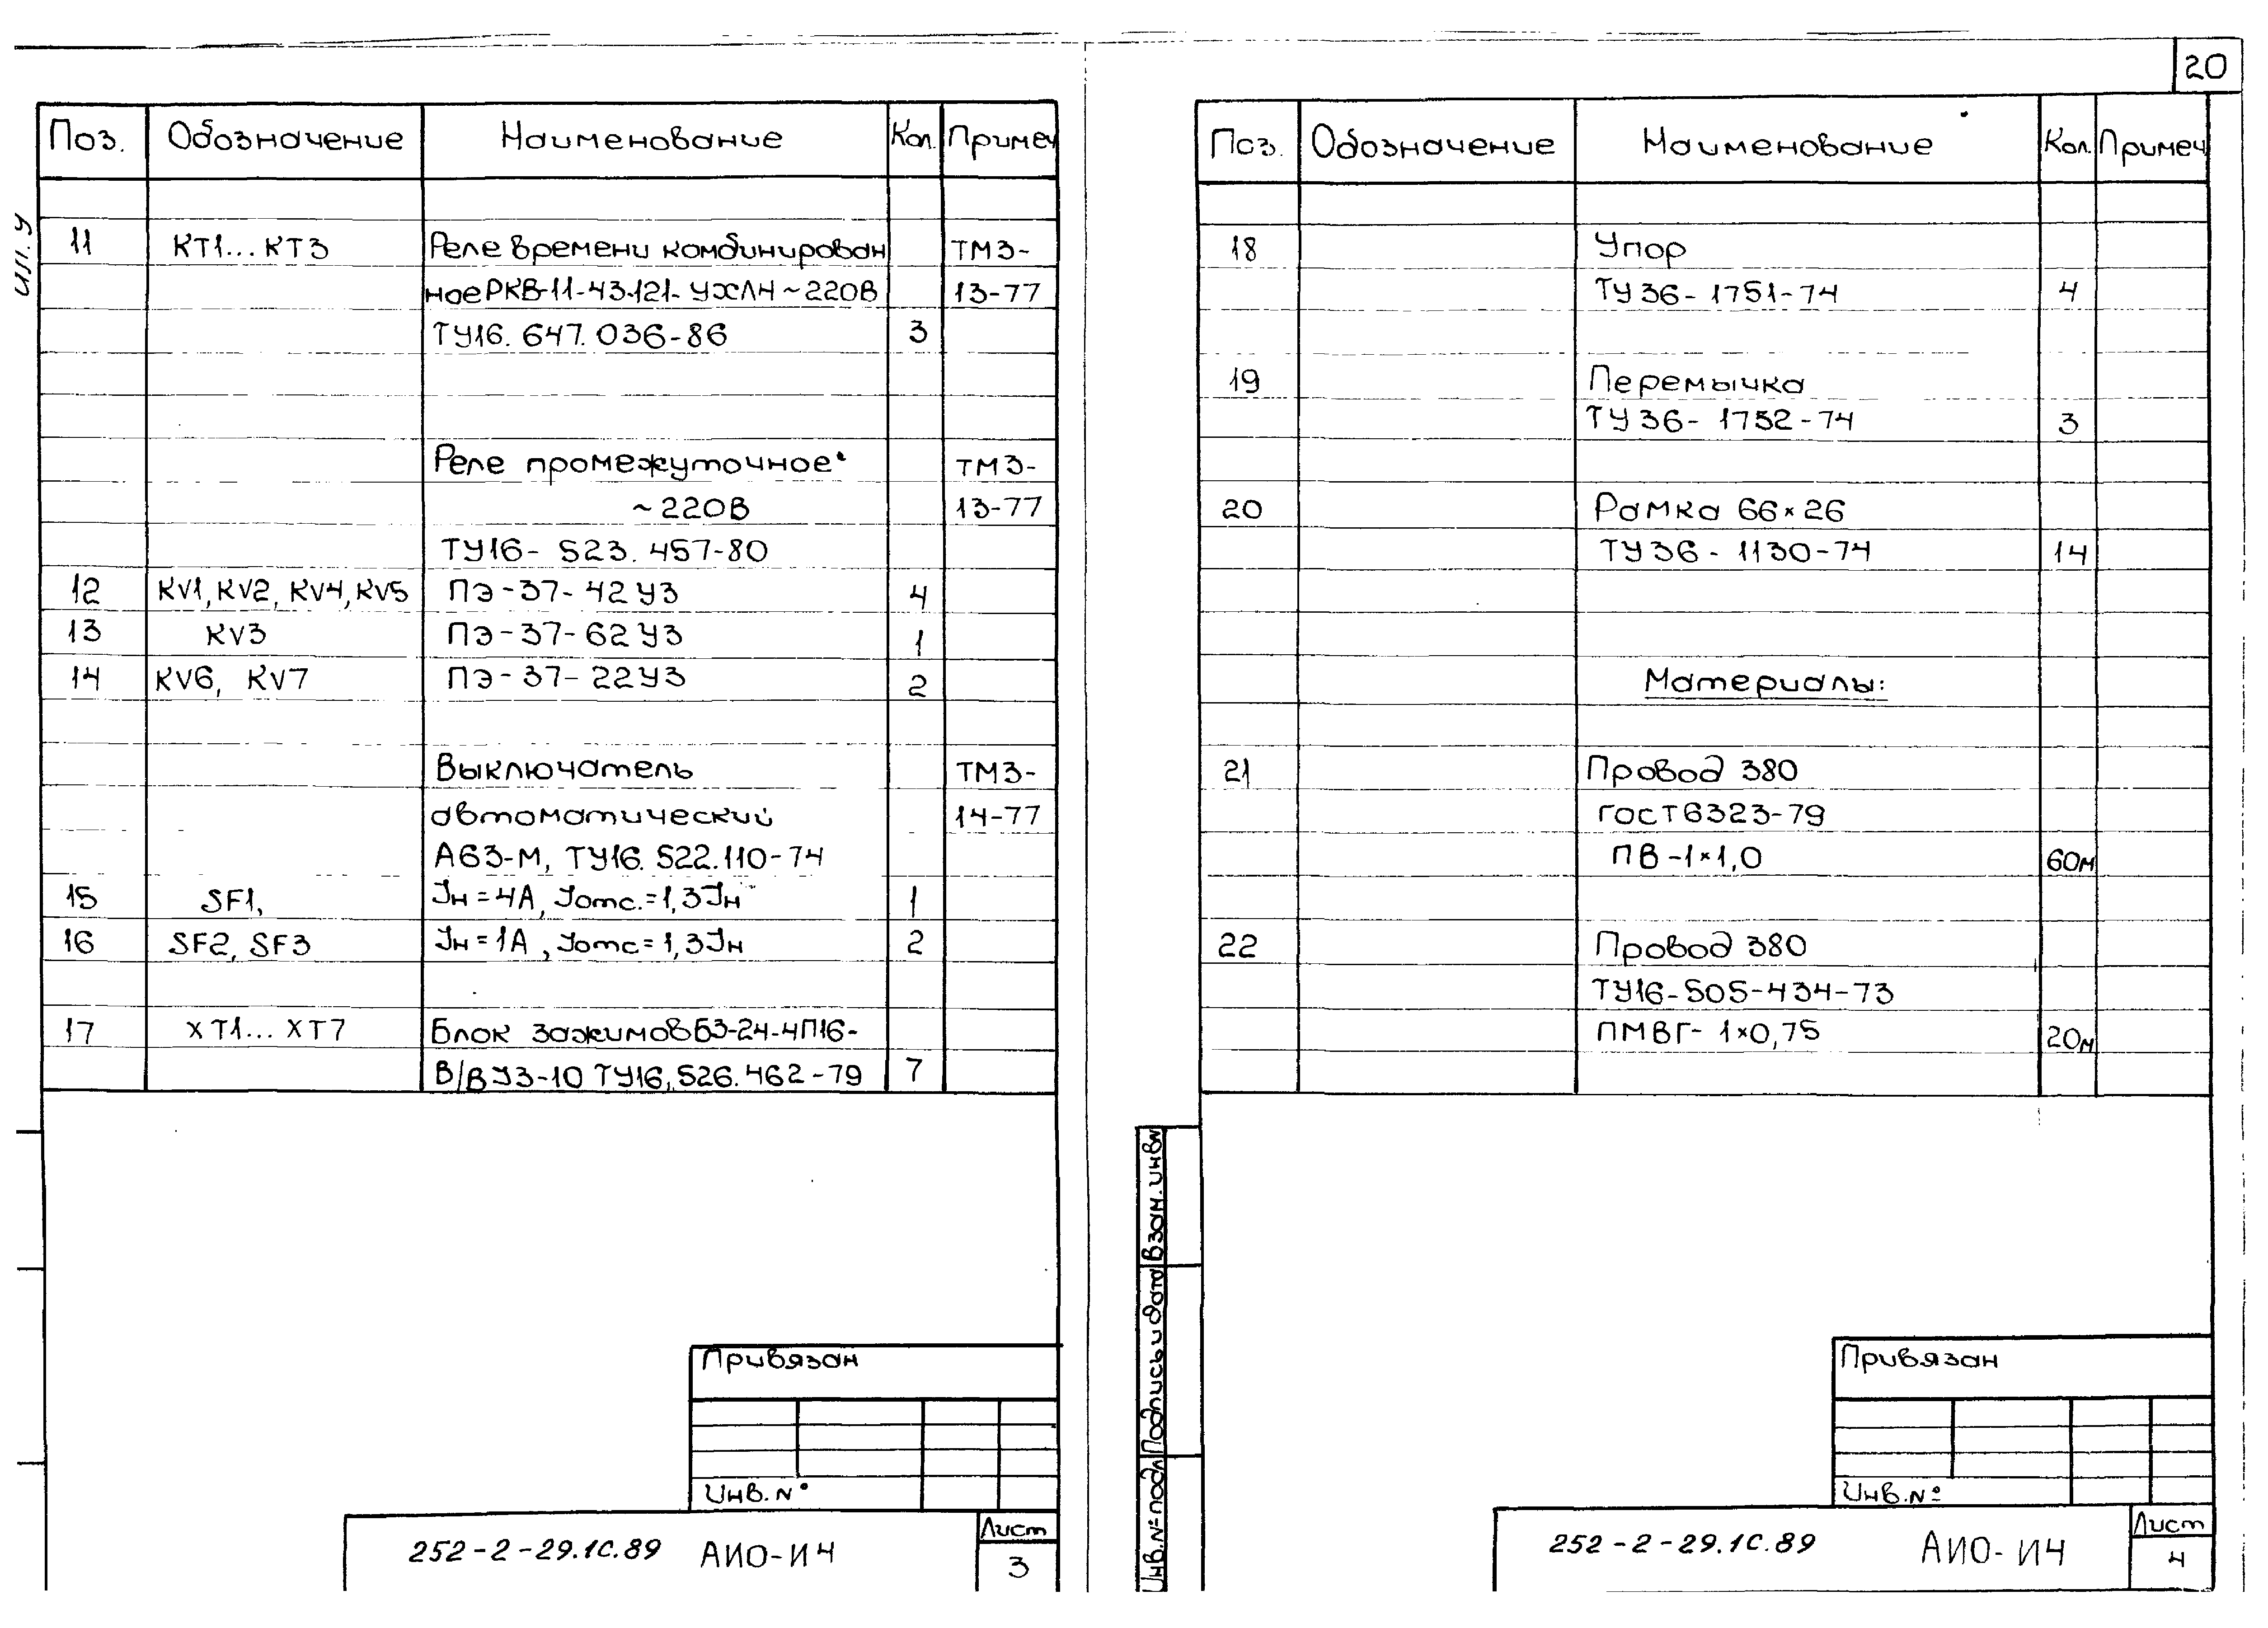 20
Поз. Обозначение Наименование Кол. Примеч
11 КТ1...КТ3 Реле времени комбинирован ТМ3-
ное РКВ-11-43-121-УХЛ4 ~220В 13-77
ТУ16.647.036-86 3
Реле промежуточное ТМ3-
~220В 13-77
ТУ16-523.457-80
12 KV1, KV2, KV4, KV5 ПЭ-37-42У3 4
13 KV3 ПЭ-37-62У3 1
14 KV6, KV7 ПЭ-37-22У3 2
Выключатель ТМ3-
автоматический 14-77
А63-М, ТУ16.522.110-74
15 SF1, Iн=4А, Iотс.=1,3Iн 1
16 SF2, SF3 Iн=1А, Iотс=1,3Iн 2
17 ХТ1...ХТ7 Блок зажимов БЗ-24-4П16-
В/ВУ3-10 ТУ16.526.462-79 7
Привязан
Инв.N°
252-2-29.1с.89 АИО-И4
Лист
3
Поз. Обозначение Наименование Кол. Примеч
18 Упор
ТУ36-1751-74 4
19 Перемычка
ТУ36-1752-74 3
20 Рамка 66×26
ТУ36-1130-74 14
Материалы:
21 Провод 380
ГОСТ6323-79
ПВ-1×1,0 60м
22 Провод 380
ТУ16-505-434-73
ПМВГ-1×0,75 20м
Взам.инвN
Подпись и дата
Инв.N°подл
Привязан
Инв.N°
252-2-29.1с.89 АИО-И4
Лист
4